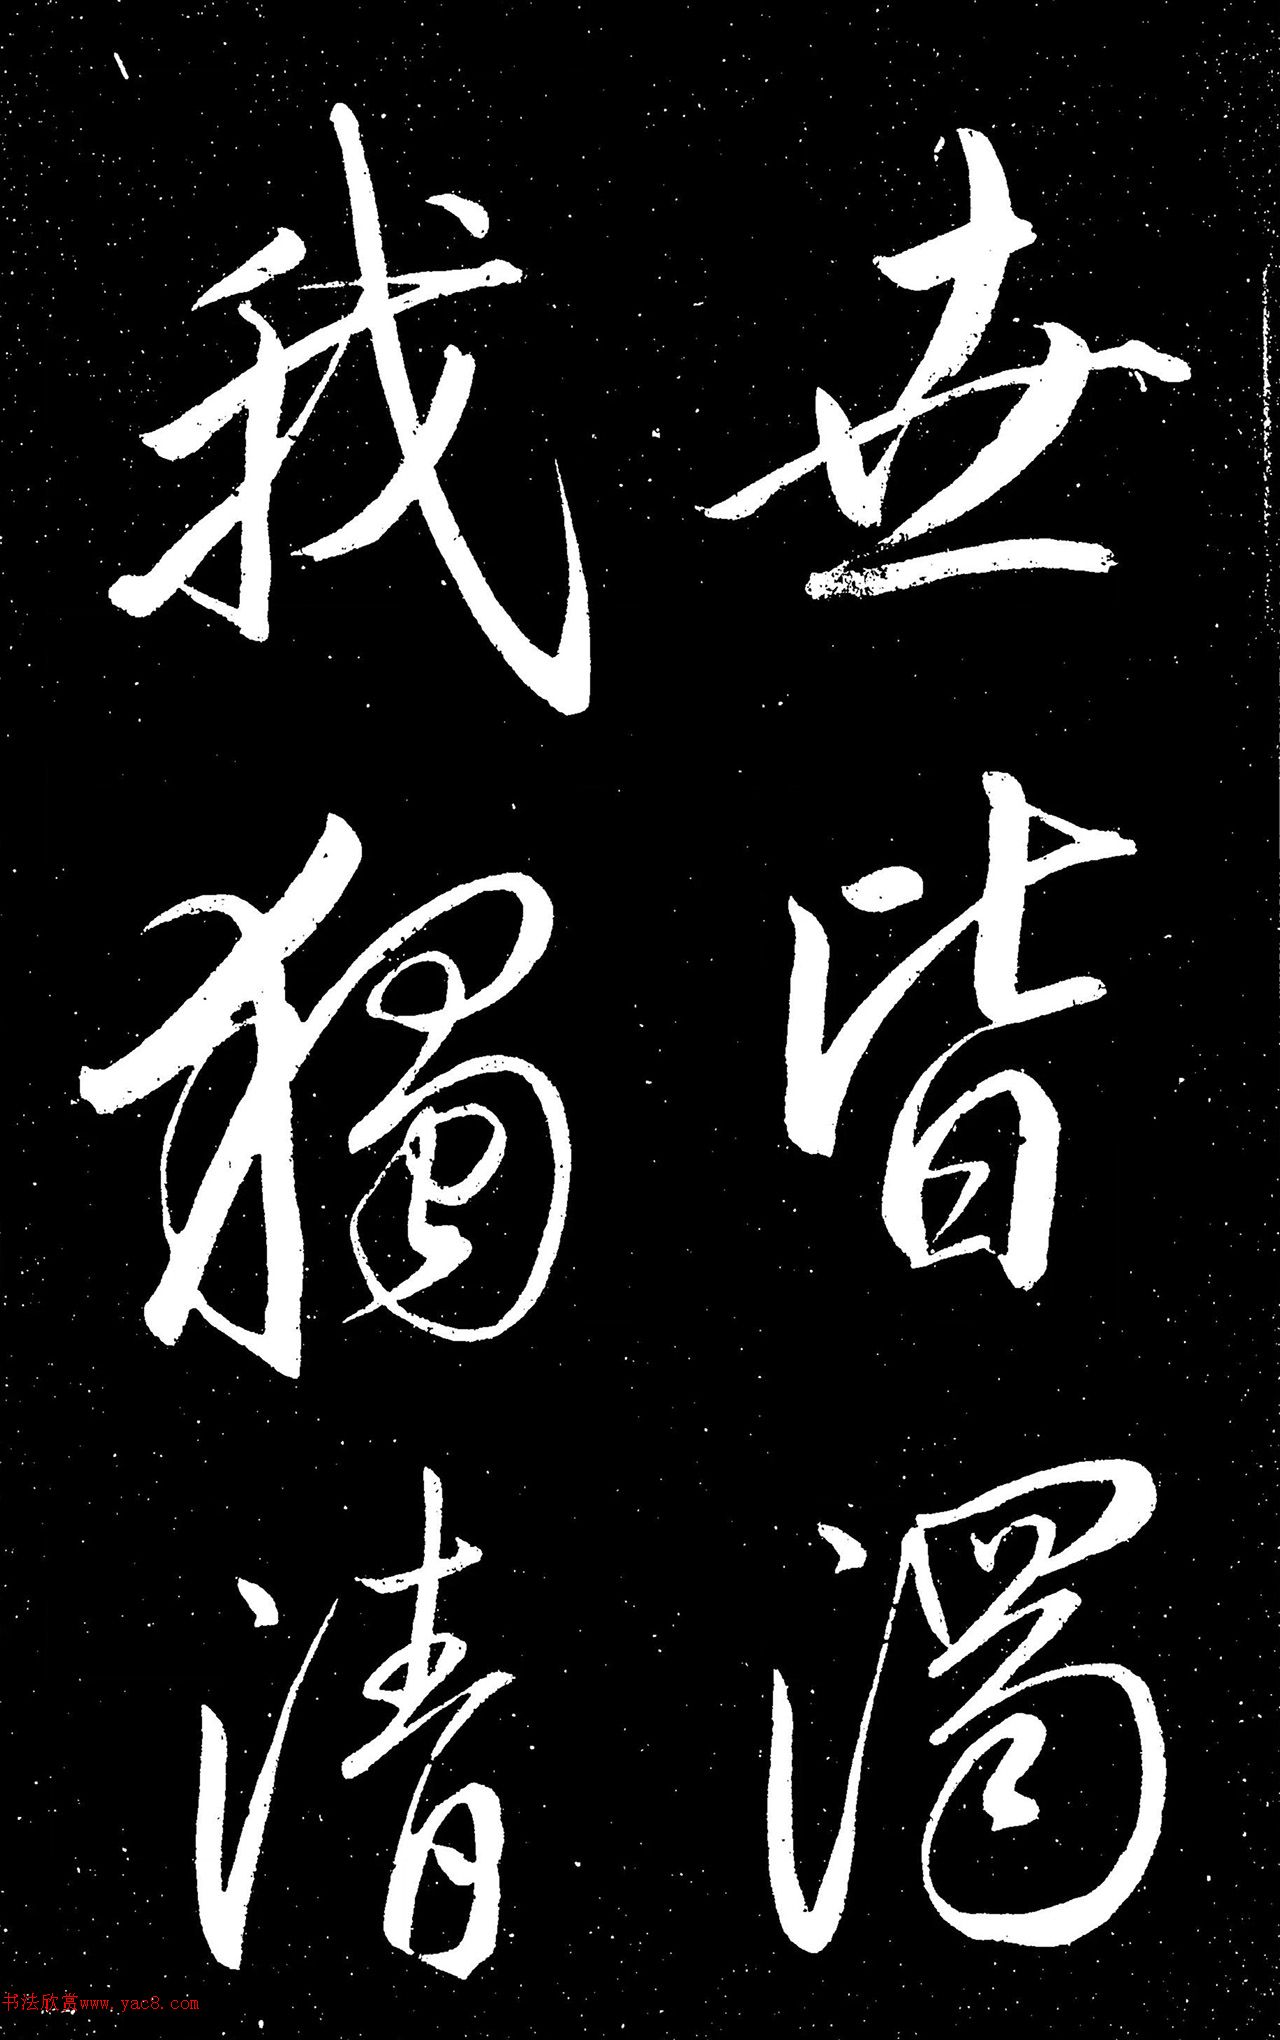 世皆濁
我獨清
书法欣赏www.yac8.com